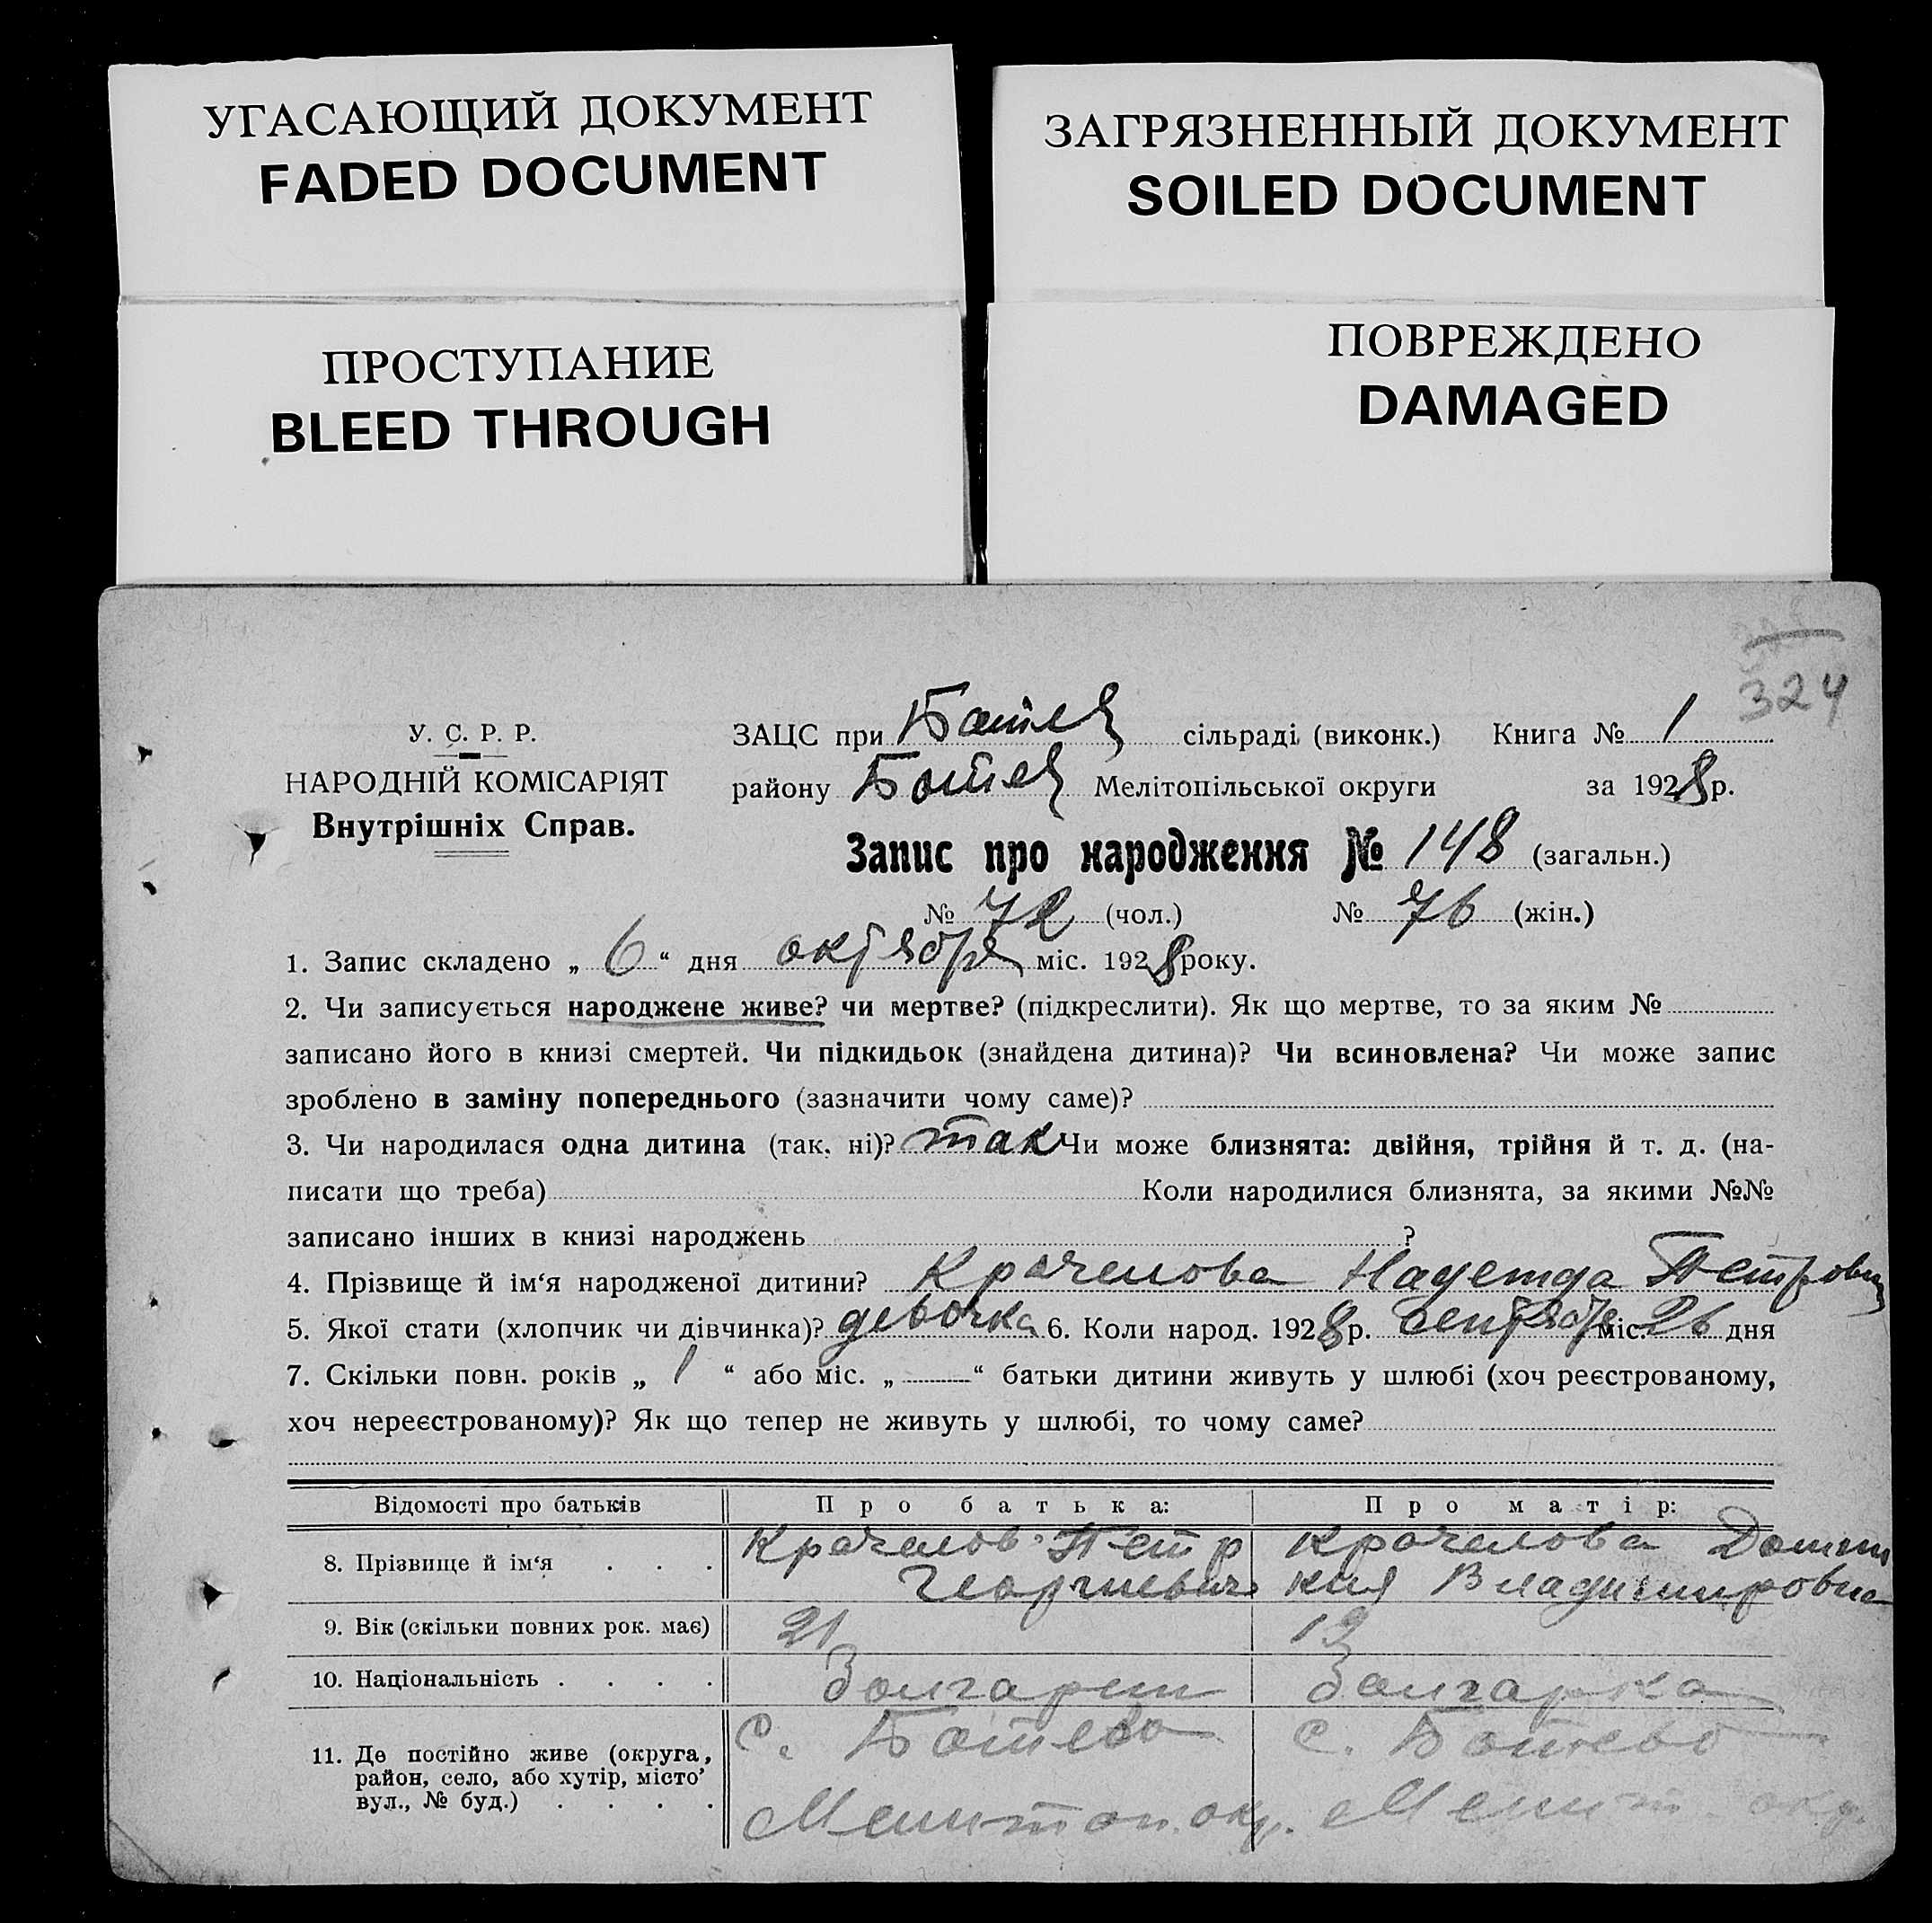 УГАСАЮЩИЙ ДОКУМЕНТ
FADED DOCUMENT
ЗАГРЯЗНЕННЫЙ ДОКУМЕНТ
SOILED DOCUMENT
ПРОСТУПАНИЕ
BLEED THROUGH
ПОВРЕЖДЕНО
DAMAGED
324
У. С. Р. Р.
НАРОДНІЙ КОМІСАРІЯТ
Внутрішніх Справ.
ЗАЦС при Ботев сільраді (виконк.) Книга № 1
району Ботев Мелітопільської округи за 1928 р.
Запис про народження № 148 (загальн.)
№ 72 (чол.) № 76 (жін.)
1. Запис складено „ 6 “ дня октября міс. 1928 року.
2. Чи записується народжене живе? чи мертве? (підкреслити). Як що мертве, то за яким №
записано його в книзі смертей. Чи підкидьок (знайдена дитина)? Чи всиновлена? Чи може запис
зроблено в заміну попереднього (зазначити чому саме)?
3. Чи народилася одна дитина (так, ні)? так Чи може близнята: двійня, трійня й т. д. (на-
писати що треба) Коли народилися близнята, за якими №№
записано інших в книзі народжень ?
4. Прізвище й ім‘я народженої дитини? Крачелова Надежда Петровна
5. Якої стати (хлопчик чи дівчинка)? девочка 6. Коли народ. 1928 р. сентября міс. 26 дня
7. Скільки повн. років „ 1 “ або міс. „ — “ батьки дитини живуть у шлюбі (хоч реєстрованому,
хоч нереєстрованому)? Як що тепер не живуть у шлюбі, то чому саме?
Відомості про батьків Про батька: Про матір:
8. Прізвище й ім‘я . . . Крачелов Петр Георгиевич Крачелова Домникия Владимировна
9. Вік (скільки повних рок. має) 21 19
10. Національність . . . . Болгарин Болгарка
11. Де постійно живе (округа, район, село, або хутір, місто’ вул., № буд.) . . . . с. Ботево Мелитоп. окр. с. Ботево Мелит. окр.